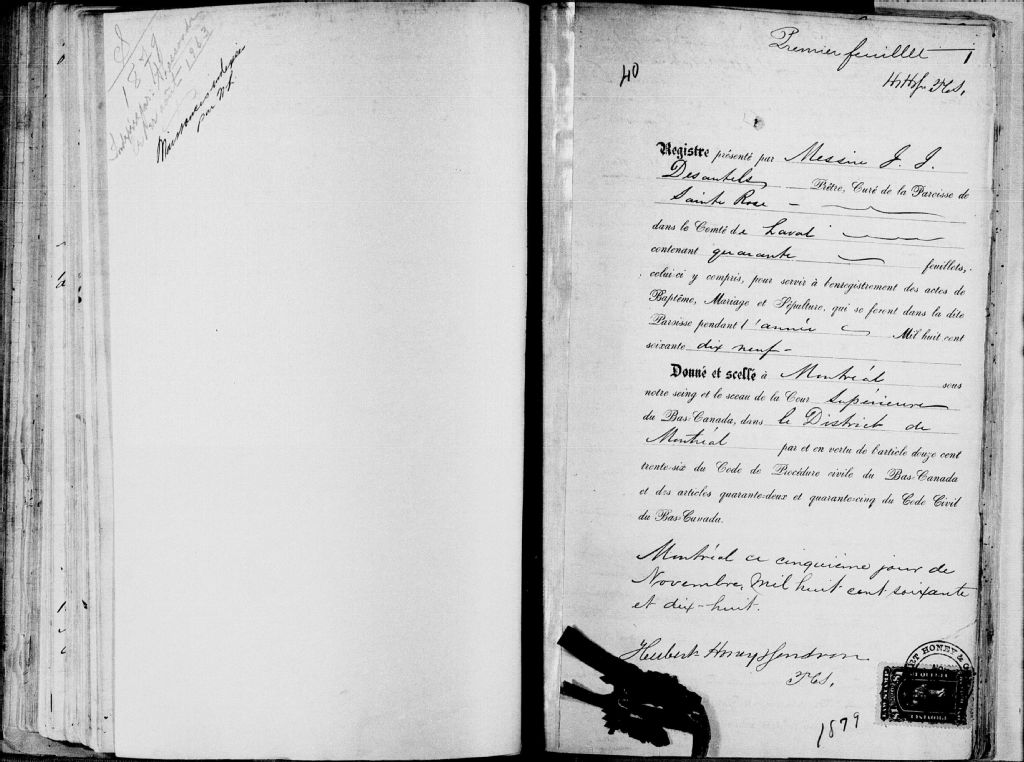 S
1879
1963
par
Premier feuillet 1
40
Registre présenté par Messire J. J.
Desautels Prêtre, Curé de la Paroisse de
Sainte Rose
dans le Comté de Laval
contenant quarante feuillets,
celui-ci y compris, pour servir à l'enregistrement des actes de
Baptême, Mariage et Sépulture, qui se feront dans la dite
Paroisse pendant l'année Mil huit cent
soixante dix neuf -
Donné et scellé à Montréal sous
notre seing et le sceau de la Cour Supérieure
du Bas-Canada, dans le District de
Montréal par et en vertu de l'article douze cent
trente-six du Code de Procédure civile du Bas-Canada
et des articles quarante-deux et quarante-cinq du Code Civil
du Bas-Canada.
Montréal ce cinquième jour de
Novembre, Mil huit cent soixante
et dix-huit.
Hubert Honey & Gendron
HONEY & G
1879